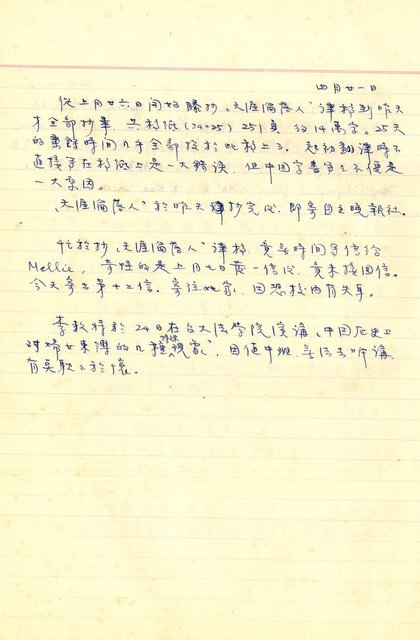 四月廿一日
從上月廿六日開始謄抄“天涯淪落人”譯稿到昨天
才全部抄畢，共稿紙(24×25)251頁，約14萬字。25天
的業餘時間幾乎全部投於此稿上了。起初翻譯時不
直接寫在稿紙上是一大錯誤，但中國字書寫之不便是
一大原因。
“天涯淪落人”於昨天譯抄完後，即寄自立晚報社。
忙於抄“天涯淪落人”譯稿，竟無時間寫信給
Mellie，奇怪的是上月七日發一信後，竟未接回信。
今天寄出第十二信。寄往她家，因恐校內有失耳。
李敖將於24日在台大法學院演講“中國歷史上
對婦女束縛的幾種特殊現象”，因值中班，無法去聽講，
有莫歉之於懷。